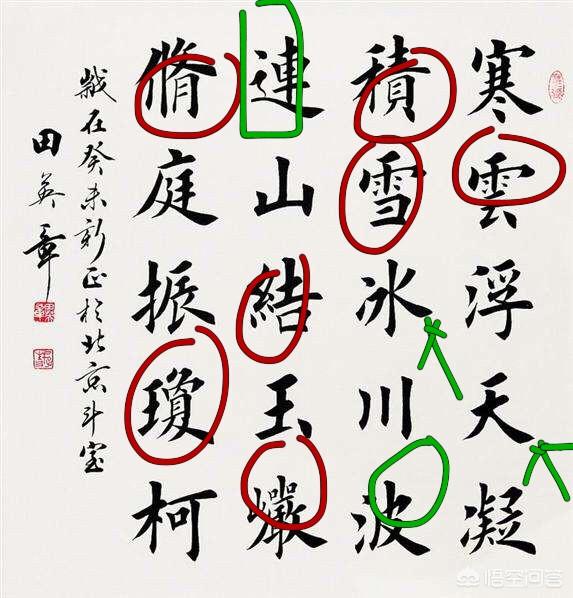 寒雲浮天凝
積雪冰川波
連山結玉巗
脩庭振瓊柯
歲在癸未新正於北京斗室
田英章
悟空问答